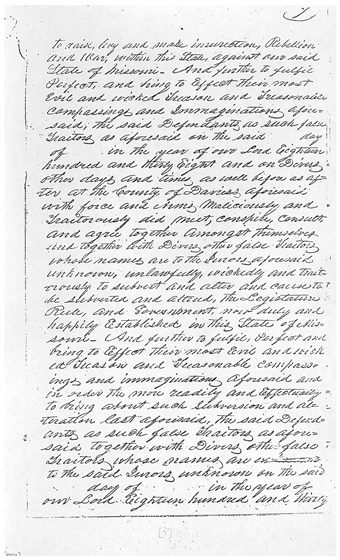 to raise, levy and make insurrection, Rebellion
and War, within this State, against our said
State of Missouri - And further to fulfil
Perfect, and bring to Effect their most
Evil and wicked Treason and Treasonable
compassings and Immaginations afore-
said, the said Defendants, as such false
Traitors as aforesaid on the said day
of in the year of our Lord Eighteen
hundred and thirty Eight and on Divers
other days and times, as well before as af-
ter at the County of Daviess, aforesaid
with force and Arms, Maliciously and
Traitorously did meet, conspire, consult
and agree together amongst themselves
and together with Divers other false Traitors
whose names are to the Jurors aforesaid
unknown, unlawfully, wickedly and trait-
orously to subvert and alter and cause to
be subverted and altered, the Legislature
Rule, and Government, now duly and
happily Established in this State of Mis-
souri - And further to fulfil, Perfect and
bring to Effect their most Evil and wick
ed Treason and Treasonable compass-
ings and immaginations aforesaid and
in order the more readily and Effectually
to bring about such subversion and al-
teration last aforesaid, the said Defend-
ants as such false Traitors as afore-
said together with Divers other false
Traitors whose names are
to the said Jurors unknown on the said
day of in the year of
our Lord Eighteen hundred and thirty